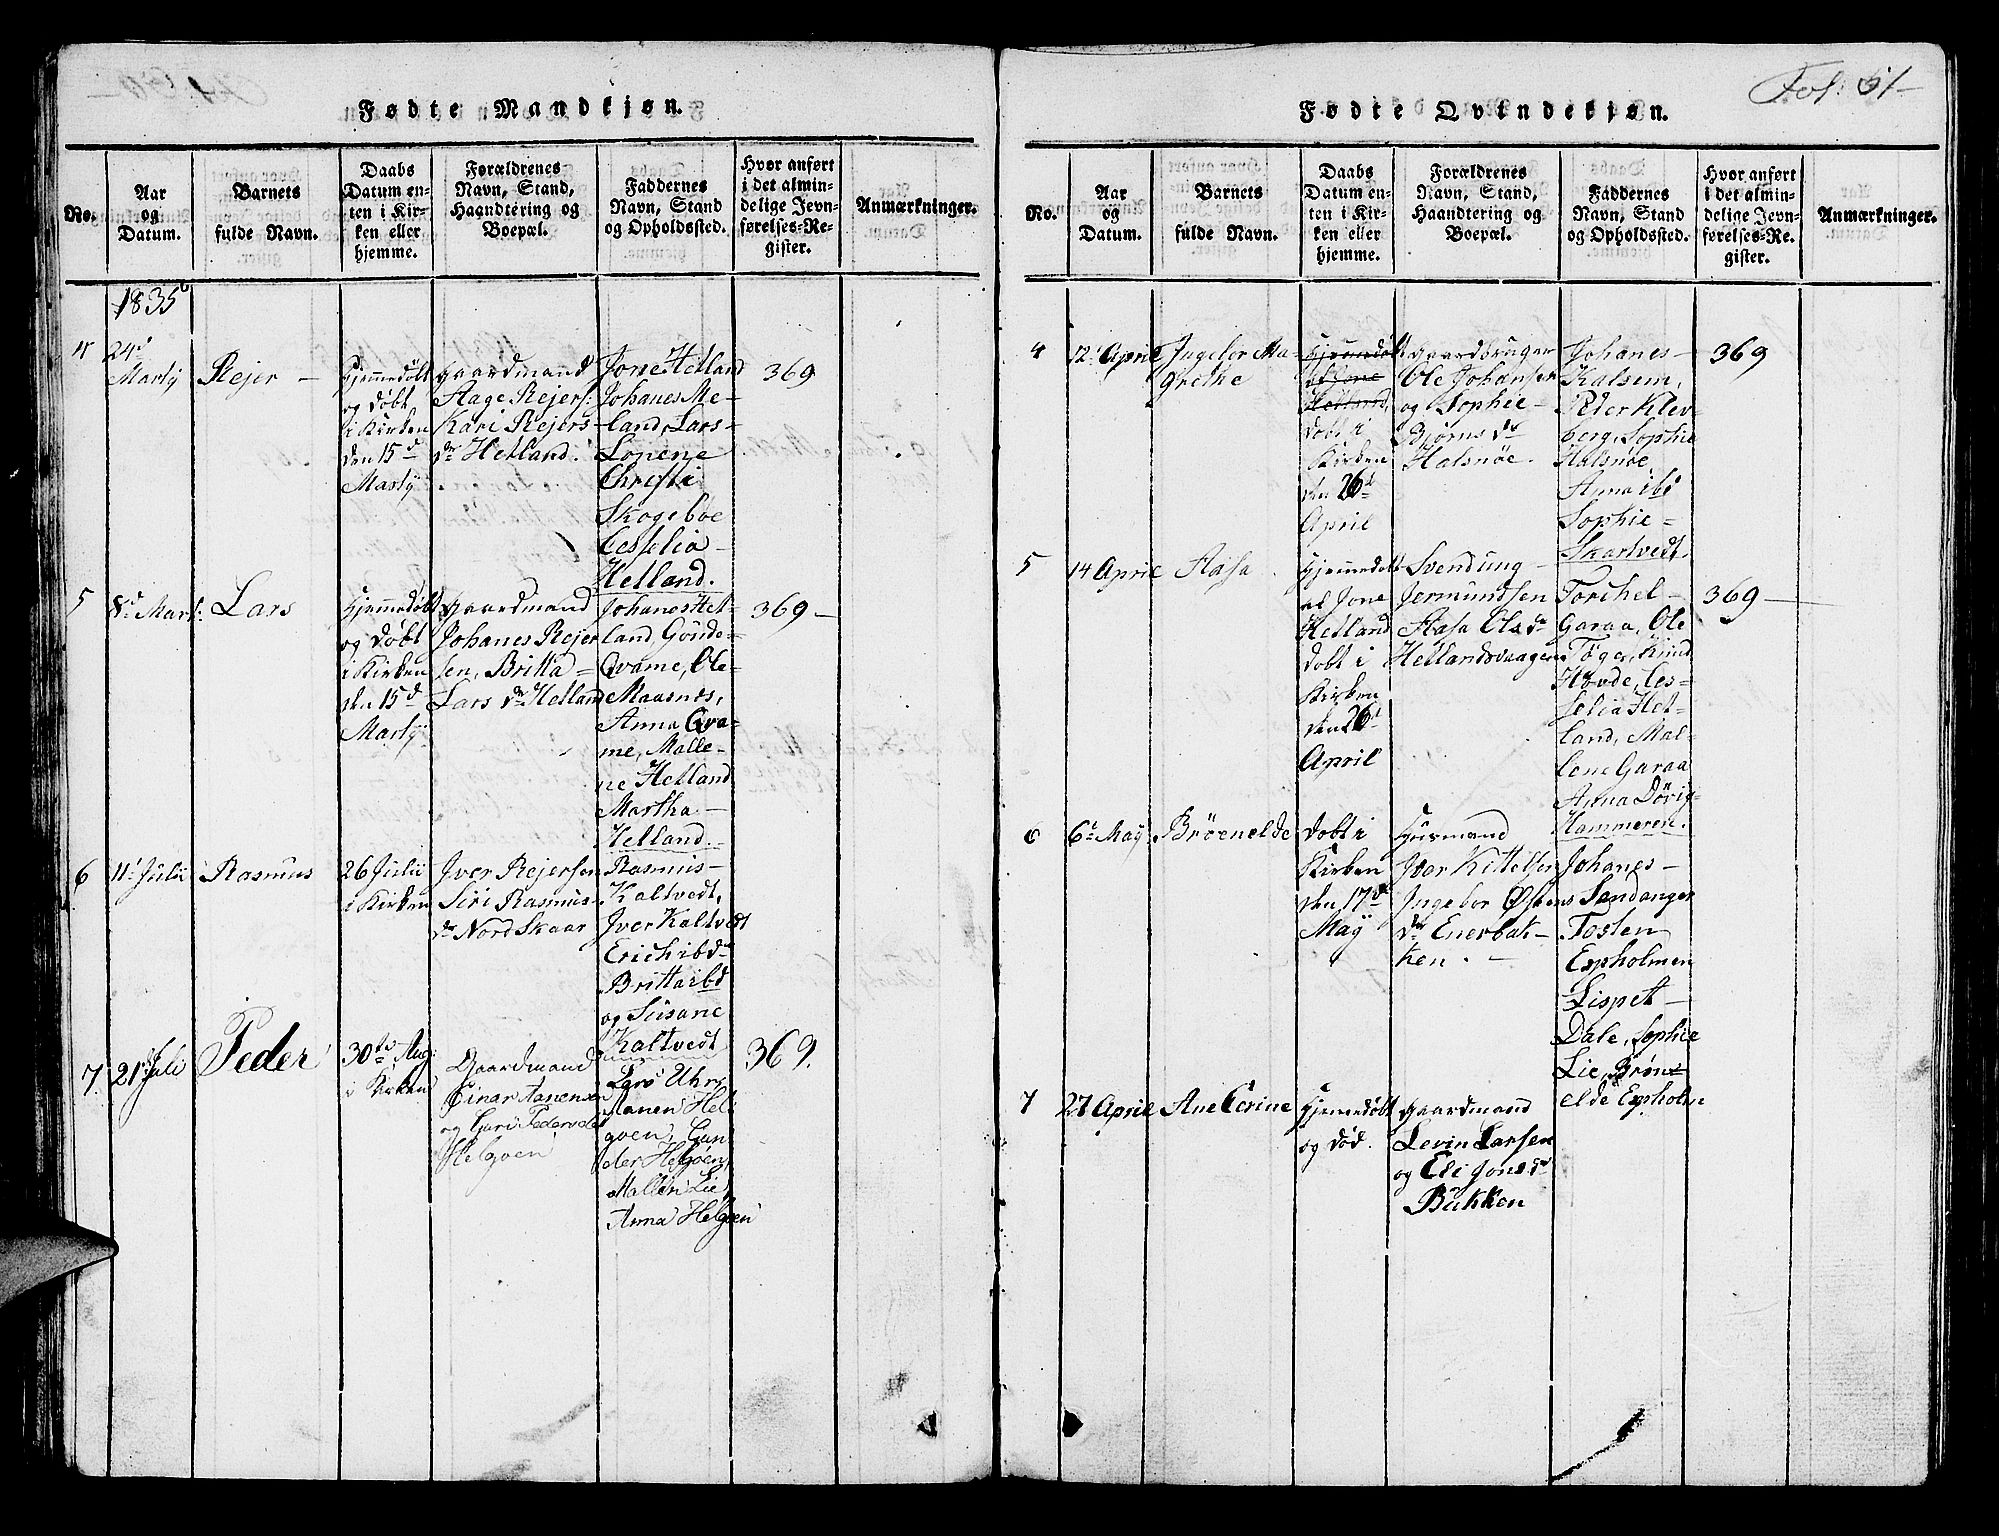 Fol: 51-
Fødte Mandkjøn.
No.
Aar
og
Datum.
Barnets
fulde Navn.
Daabs
Datum en-
ten i Kir-
ken eller
hjemme.
Forældrenes
Navn, Stand,
Haandtering og
Boepæl.
Faddernes
Navn, Stand
og Opholdssted.
Hvor anført
i det almin-
delige Jevn-
førelses-Re-
gister.
Anmærkninger.
1835
4
24d
Martij
Rejer -
Hjemedøbt
og døbt
i Kirken
den 15d
Martij
Gaardmand
Aage Rejers:
Kari Rejers
dr Hetland.
Jone Hetland
Johanes Me-
land, Lars-
Lopene
Christi
Skogeboe
Cesselia -
Hetland.
369
5
8d Mart:
Lars
Hjemedøbt
og døbt
i Kirken
den 15d
Martij
Gaardmand
Johanes Rejer
sen, Britta =
Lars dr Hetland
Johanes Het-
land, Gønde-
Qvame, Ole-
Maasnes,
Anna Qva-
me, Malle-
ne Hetland
Martha -
Hetland.
369 -
6
11t Julii
Rasmus
26 Julii
i Kirken
Iver Rejersen
Siri Rasmus-
dr Nord Skaar
Rasmus-
Kaltvedt,
Iver Kaltvedt
Erich ibd-
Britta ibd
og Susane
Kaltvedt
7
21 Juli
Peder
30te Aug:
i Kirken
Gaardmand
Einar Aanensen
og Guri Pedersd
Helgøen
Lars Uhr,
Aanen Hel
gøen, Gun
der Helgøen,
Mallen Lie,
Anna Helgøen
369.
Fødte Qvindekjøn.
No.
Aar
og
Datum.
Barnets
fulde Navn.
Daabs
Datum en-
ten i Kir-
ken eller
hjemme.
Forældrenes
Navn, Stand,
Haandtering og
Boepæl.
Faddernes
Navn, Stand
og Opholdssted.
Hvor anført
i det almin-
delige Jevn-
førelses-Re-
gister.
Anmærkninger.
4
12t April
Ingebor Ma-
grethe
Hjemedøbt
af Jone
Hetland,
døbt i
Kirken
den 26d
April
Gaardbruger
Ole Johansen
og Sophie -
Bjørns dr
Halsnøe.
Johanes -
Kalsem,
Peder Klev
berg, Sophie
Halsnøe,
Anna ibd
Sophie -
Skartvedt.
369
5
14 April
Aasa
Hjemedøbt
af Jone
Hetland
døbt i
Kirken
den 26d
April
Svendung -
Jermundsen
Aasa Ols dr
Hetlandsvaagen
Torchel -
Garaa, Ole
Tøge, Knud
Høvde, Ces-
selia Het-
land, Mal-
lene Garaa
Anna Dövig
Hammeren.
369 -
6
6t May
Brøenelde
døbt i
Kirken
den 17de
May
Huusmand
Ivar Kittelsen
Ingebor Østens
dr Enerbak-
ken. -
Johanes -
Sandanger
Tosten
Expholmen
Lispet -
Dale, Sophie
Lie, Brøn=
elde Expholm
7
27 April
Ane Cerine
Hjemedøbt
og død.
Gaardmand
Levin Larsen
og Eli Jons dr
Bakken